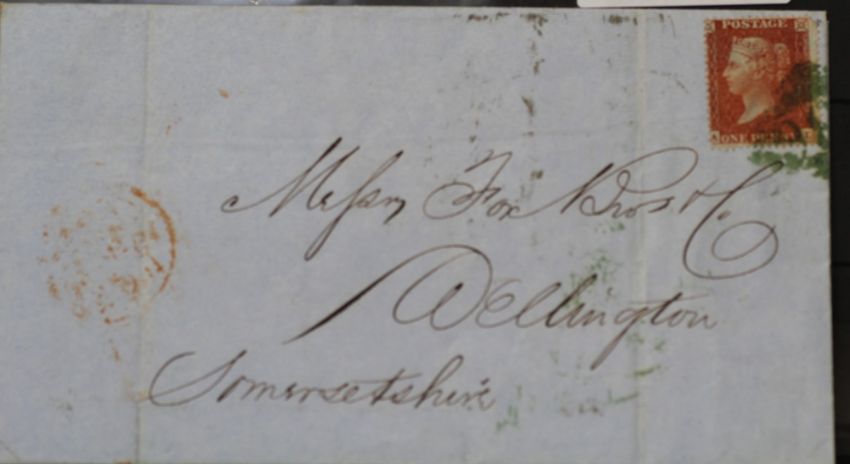 POSTAGE
ONE PENNY
Messrs Fox Bros & Co.
Wellington
Somersetshire